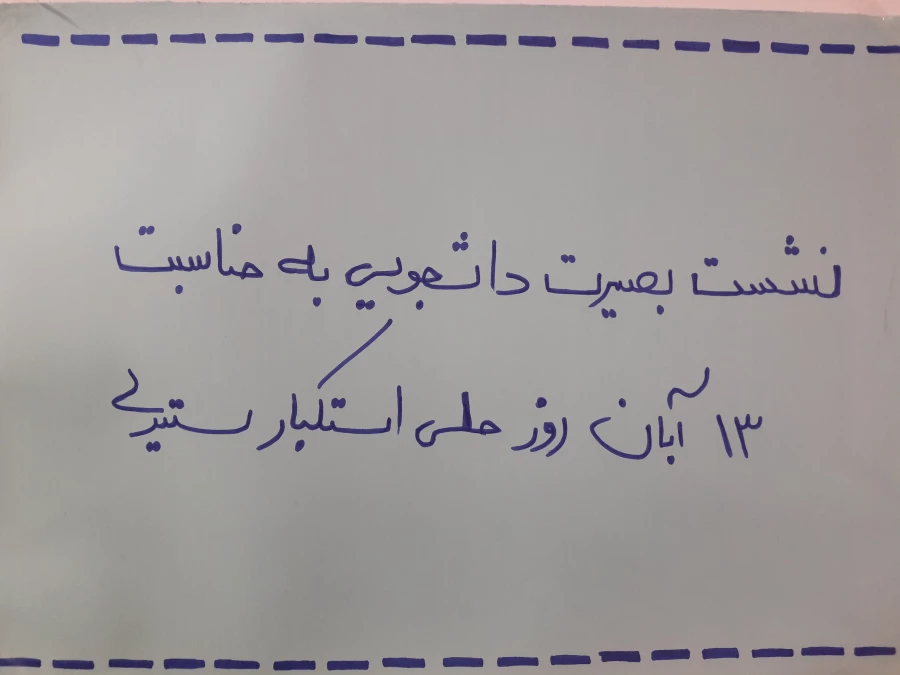 نشست بصیرت دانشجویی به مناسبت
۱۳ آبان روز ملی استکبار ستیزی